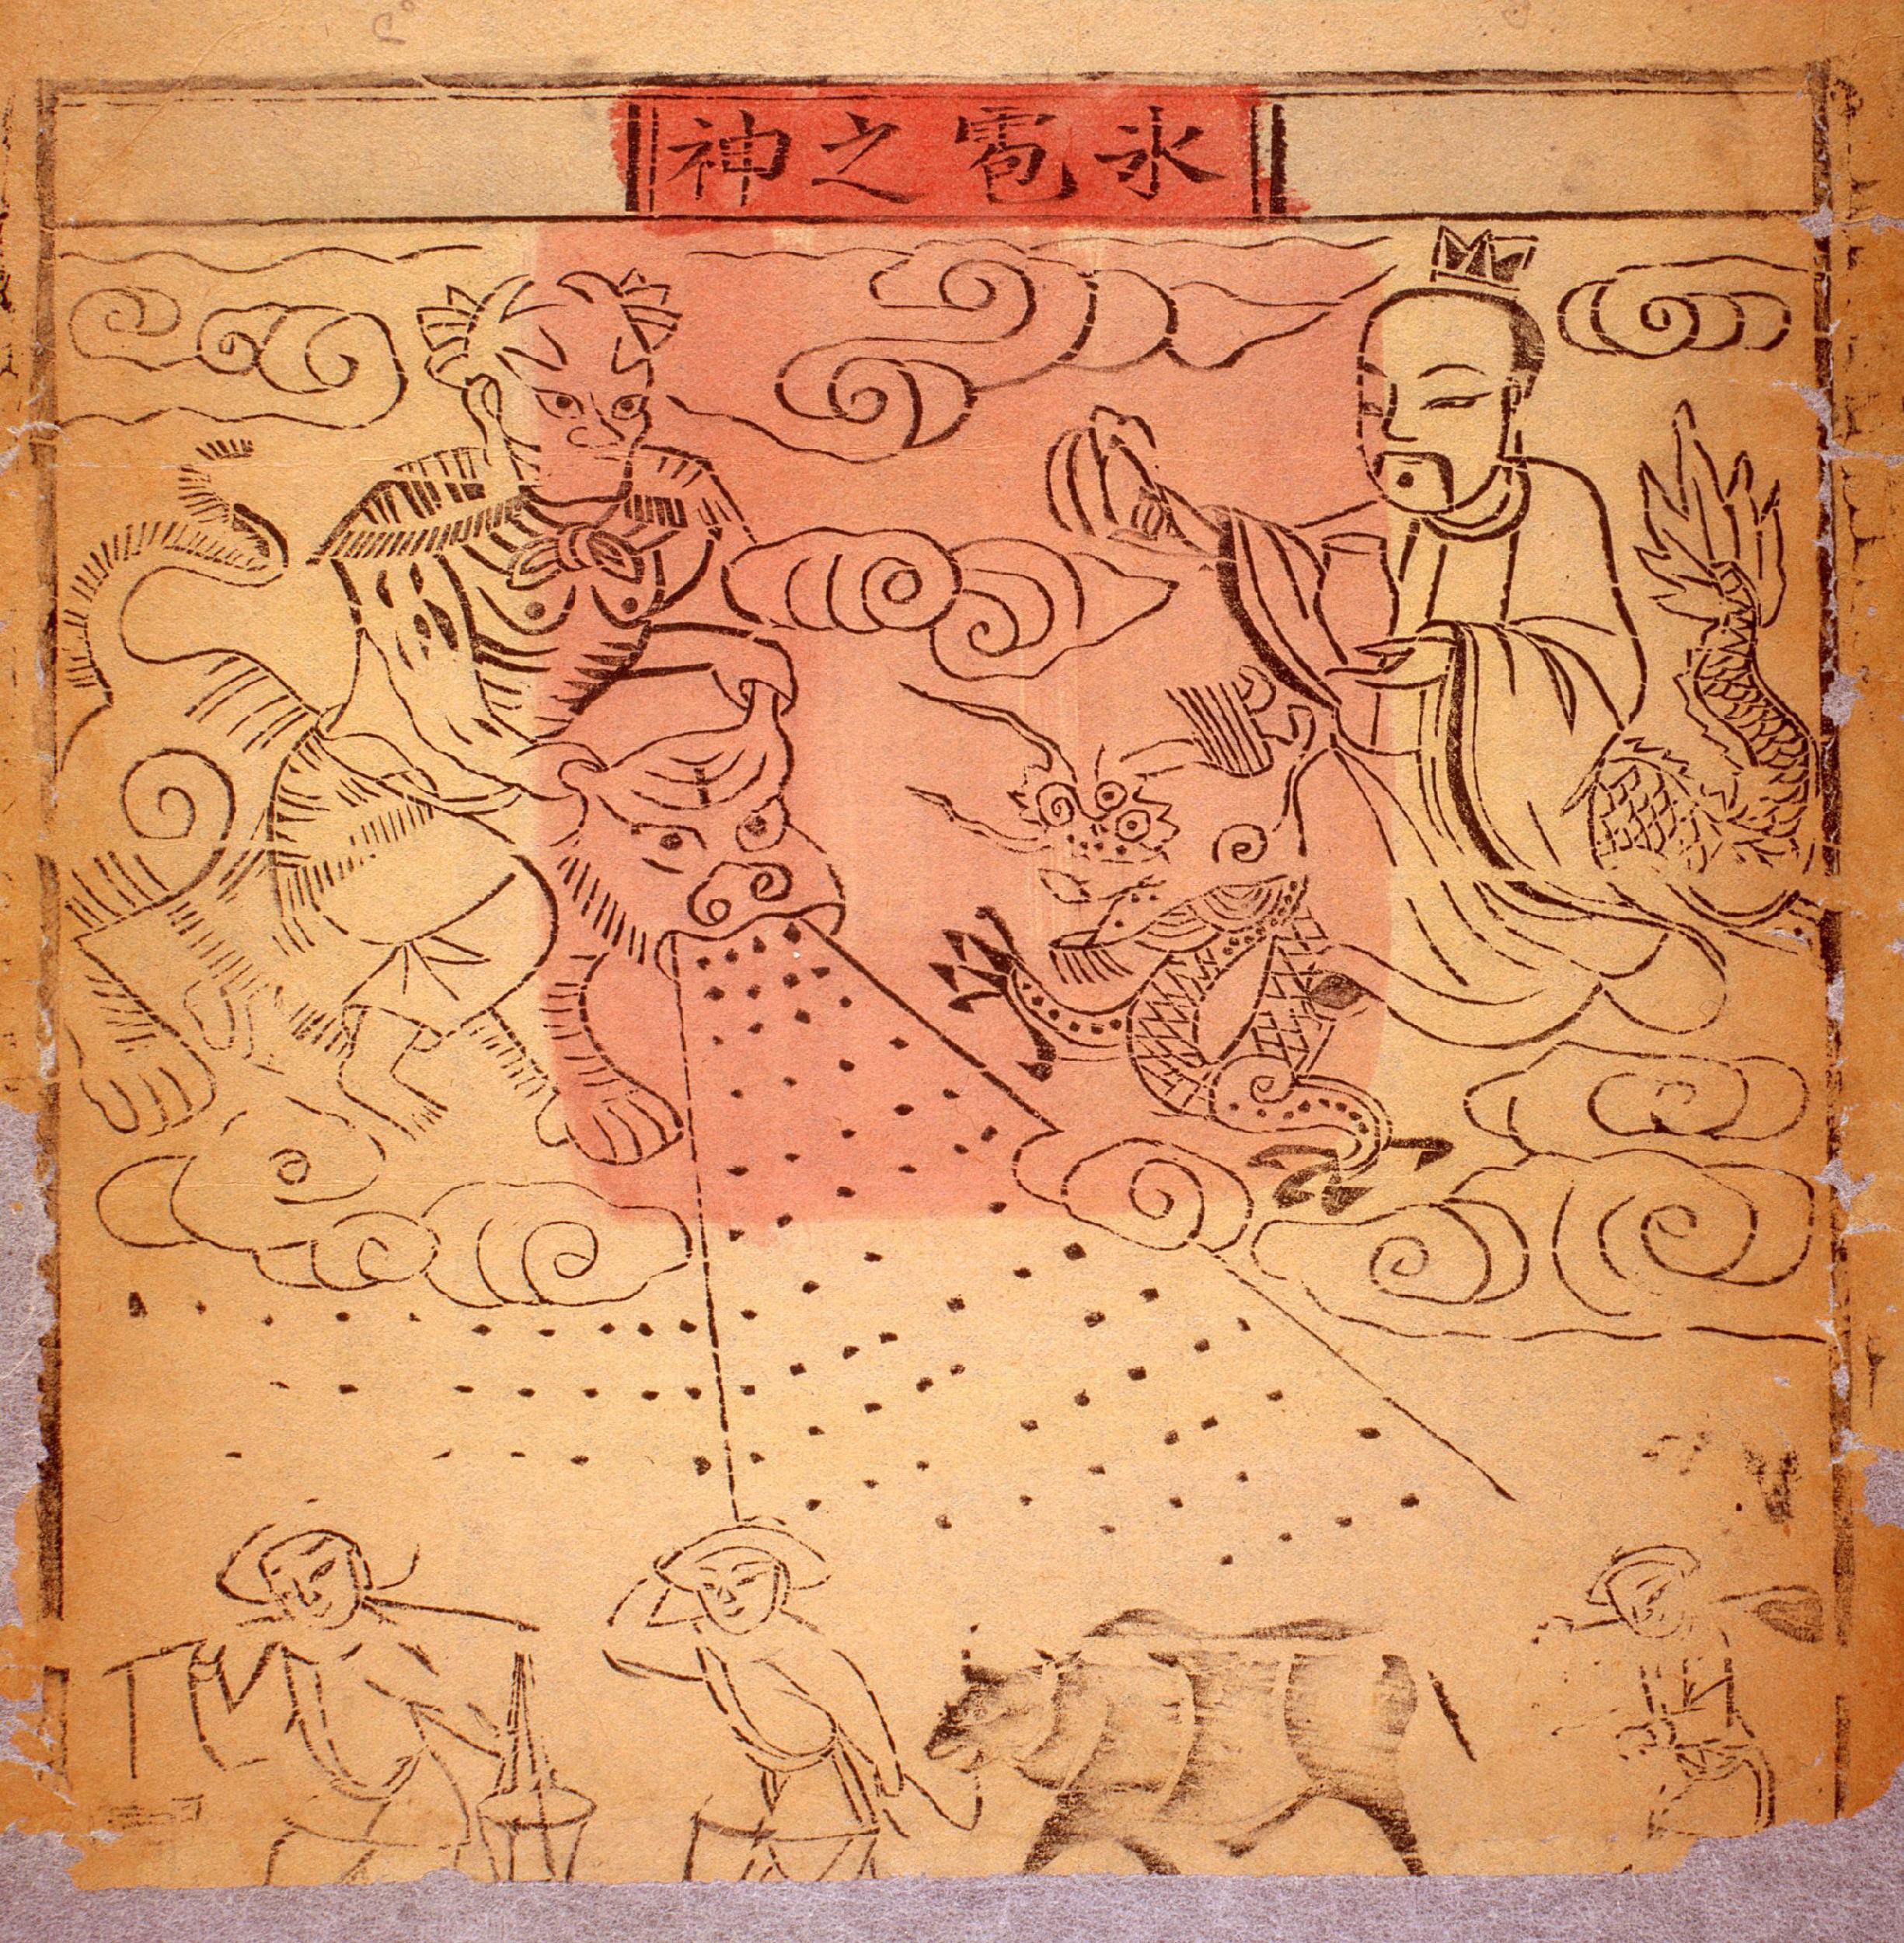 氷雹之神